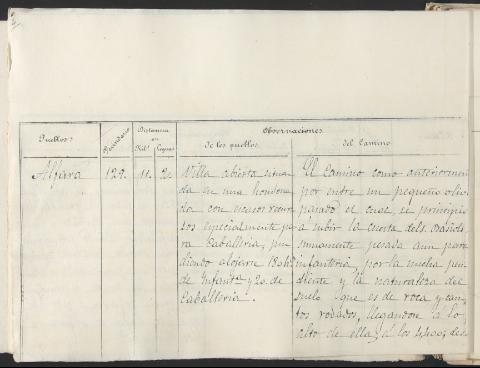 Pueblos.
Vecindario
Distancia
en
Kils. Leguas
Observaciones
De los pueblos.
del Camino
Alfara
129.
11.
2.
Villa abierta situa
da en una hondona
da con escasos recur
sos especialmente pa
ra Caballeria, pu
diendo alojarse
de Infantª y 20. de
Caballeria.
El Camino como anteriormen
por entre un pequeño oliv
pasado el cual, se principia
á subir la cuesta dels
sumamente pesada aun para
infanteria por la mucha pen
diente y la naturaleza del
suelo que es de roca y can
tos rodados, llegandose á lo
alto de ella, á los 4,400; des